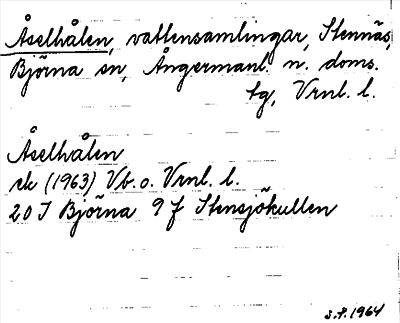 Åselhålen, vattensamlingar, Stennäs,
Björna sn, Ångermanl. n. doms.
tg, Vrnl. l.
Åselhålen
rk (1963) Vb. o. Vrnl. l.
20 J Björna 9 f Stensjökullen
S.F. 1964